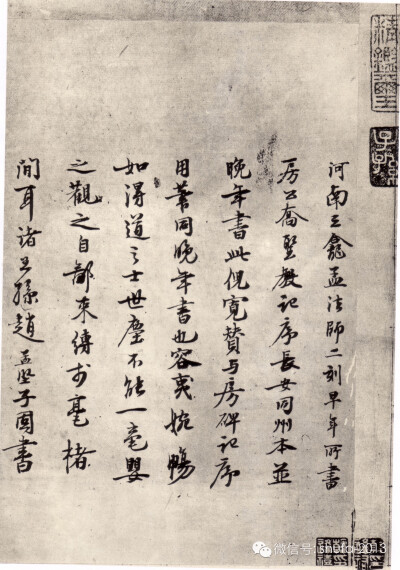 河南三龕孟法師二刻早年所書
房公喬聖教記序長安同州本並
晚年書此倪寬贊與房碑記序
用筆同晚年書也容夷婉暢
如得道之士世塵不能一毫嬰
之觀之自鄙束縛於毫楮
間耳諸王孫趙孟堅子固書
微信号: shufa-2013